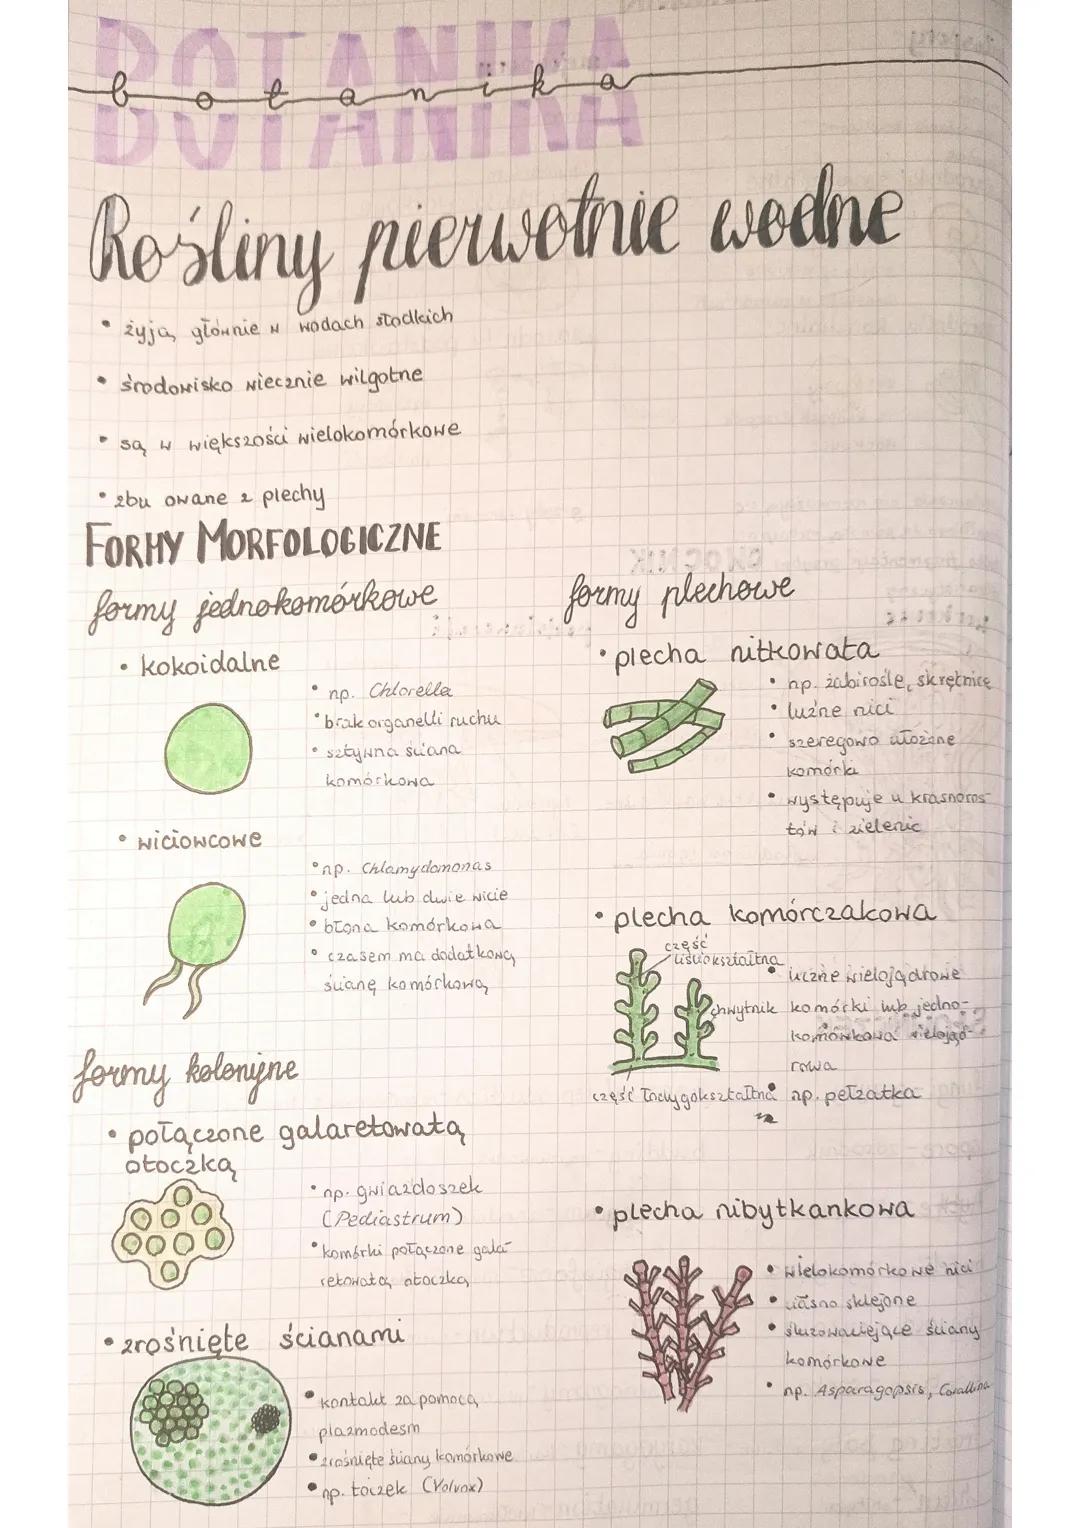 BOTANIKA
botanika
Rośliny pierwotnie wodne
• żyją głównie w wodach słodkich
• środowisko wiecznie wilgotne
• są w większości wielokomórkowe
• zbu owane z plechy
FORMY MORFOLOGICZNE
formy jednokomórkowe
• kokoidalne
• np. Chlorella
• brak organelli ruchu
• sztywna ściana
komórkowa
• wiciowcowe
• np. Chlamydomonas
• jedna lub dwie wicie
• błona komórkowa
• czasem ma dodatkową
ścianę komórkową
formy kolonijne
• połączone galaretowatą
otoczką
• np. gwiazdoszek
(Pediastrum)
• komórki połączone gala-
retowatą otoczką
• zrośnięte ścianami
• kontakt za pomocą
plazmodesm
• zrośnięte ściany komórkowe
• np. toczek (Volvox)
formy plechowe
• plecha nitkowata
• np. żabirośle, skrętnice
• luźne nici
• szeregowo ułożone
komórki
• występuje u krasnoros-
tów i zielenic
• plecha komórczakowa
część
liściokształtna
chwytnik
część łodygokształtna
• liczne wielojądrowe
komórki lub jedno-
komórkowa wielojąd-
rowa
• np. pełzatka
• plecha nibytkankowa
• wielokomórkowe nici
• ciasno sklejone
• śluzowaciejące ściany
komórkowe
• np. Asparagopsis, Corallina